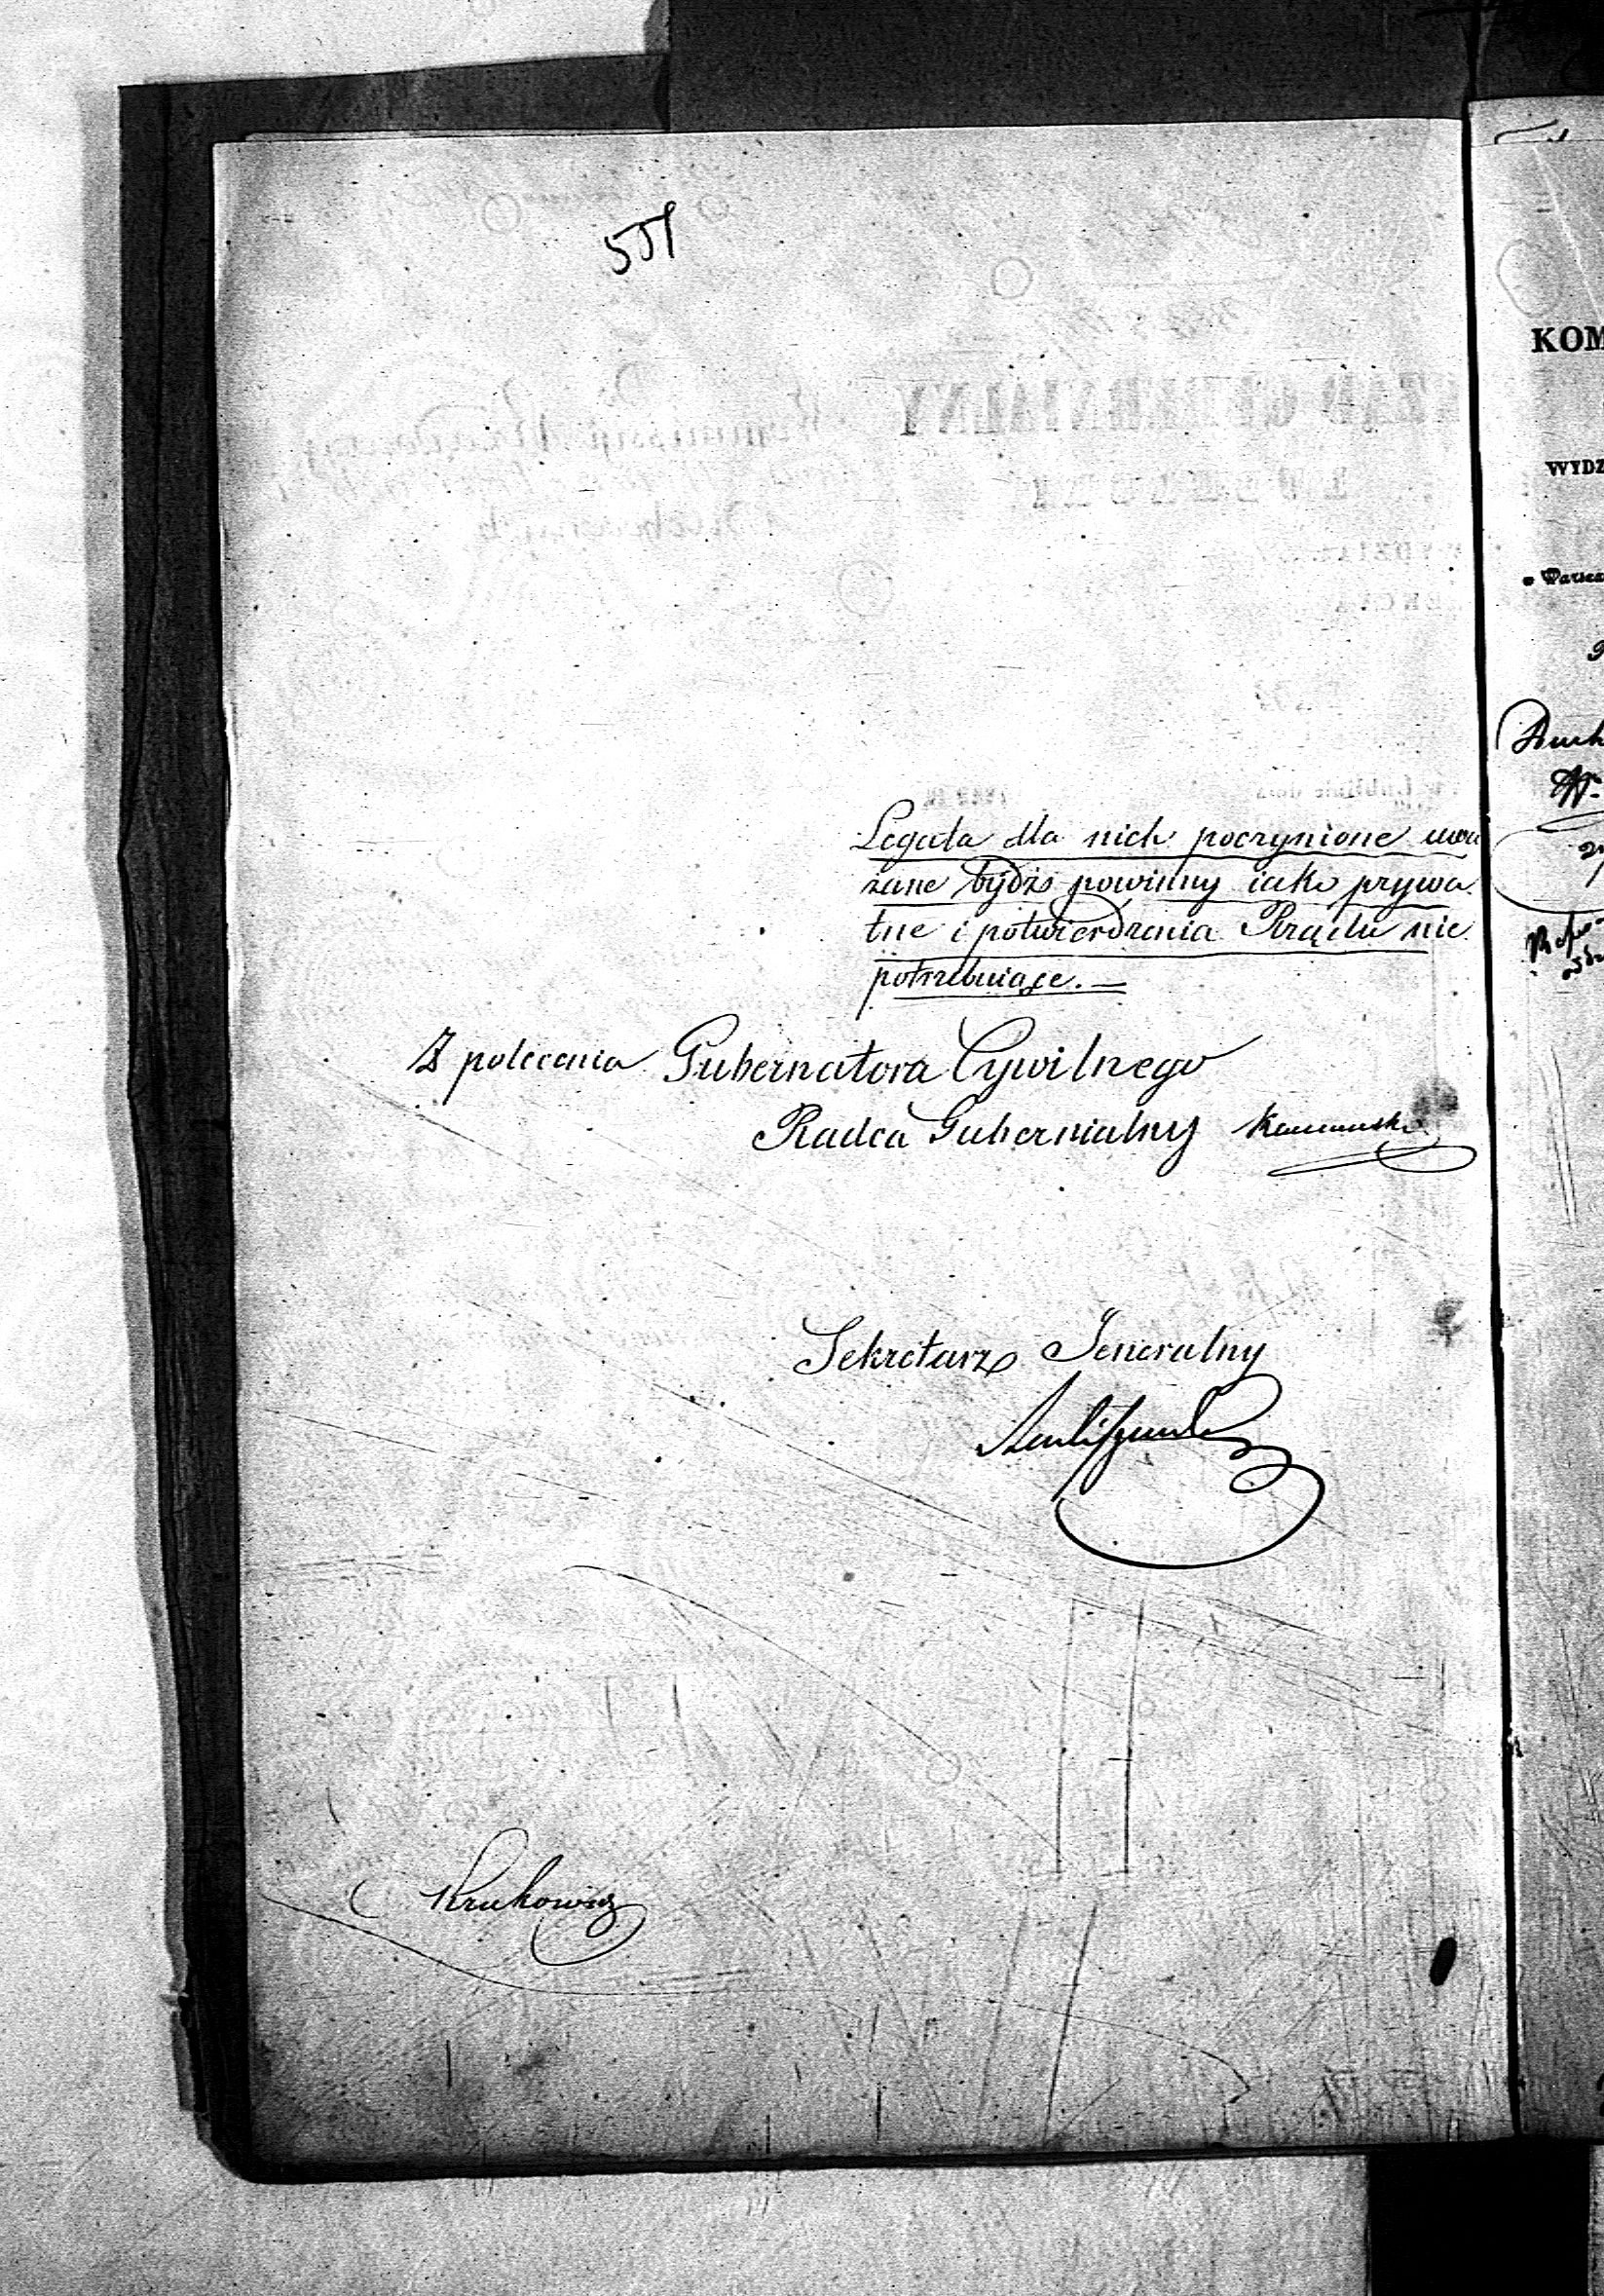 551
Legata dla nich poczynione uwa
żane bydź powinny iako prywa
tne i potwierdzenia Rządu nie
potrzebuiące. —
Z polecenia Gubernatora Cywilnego
Radca Gubernialny
Sekretarz Jeneralny
Krukowicz
KOM
WYDZ